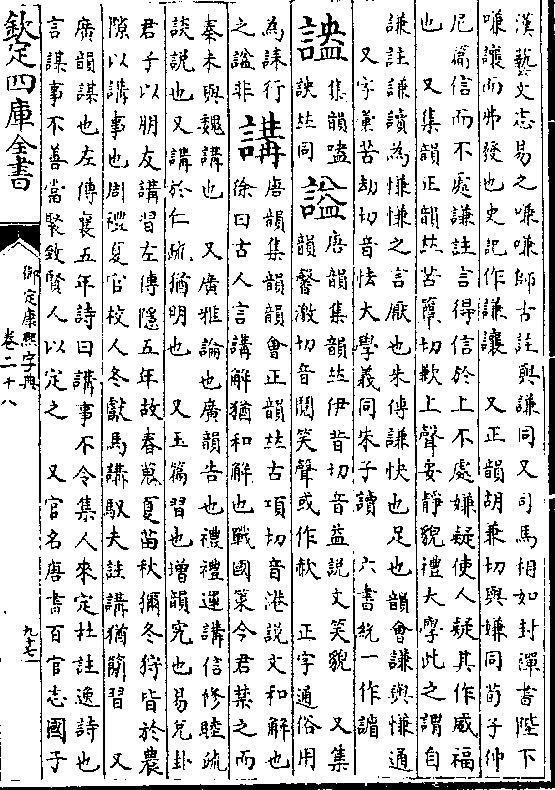 漢藝文志易之嗛嗛師古註與謙同又司馬相如封禪書陛下
嗛讓而弗發也史記作謙讓　又正韻胡兼切與嫌同荀子仲
尼篇信而不處謙註言得信於上不處嫌疑使人疑其作威福
也　又集韻正韻𠀤苦簟切歉上聲安靜貌禮大學此之謂自
謙註謙讀為慊慊之言厭也朱傳謙快也足也韻會謙與慊通
又字彙苦劫切音怯大學義同朱子讀　六書統一作𧫧
譣集韻嗑
諛𠀤同　謚唐韻集韻𠀤伊昔切音益説文笑貌　又集
韻馨激切音䦧笑聲或作㰤　正字通俗用
為誄行
之諡非　講唐韻集韻韻會正韻𠀤古項切音港說文和解也
徐曰古人言講解猶和解也戰國策今君禁之而
秦未與魏講也　又廣雅論也廣韻告也禮禮運講信修睦疏
談說也又講於仁疏猶明也　又玉篇習也增韻究也易兌卦
君子以朋友講習左傳隱五年故春蒐夏苗秋獮冬狩皆於農
隙以講事也周禮夏官校人冬獻馬講馭夫註講猶簡習　又
廣韻謀也左傳襄五年詩曰講事不令集人來定杜註逸詩也
言謀事不善當聚致賢人以定之　又官名唐書百官志國子
欽定四庫全書
御定康熙字典
卷二十八
九十七